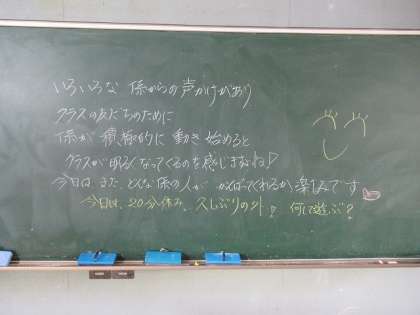 いろいろな 係からの声かけがあり
クラスの友だちのために
係が積極的に動き始めると
クラスが明るくなってくるのを感じますね♪
今日は また、どんな係の人が がんばってくれるか楽しみです
今日は、20分休み、久しぶりの外！ 何して遊ぶ？